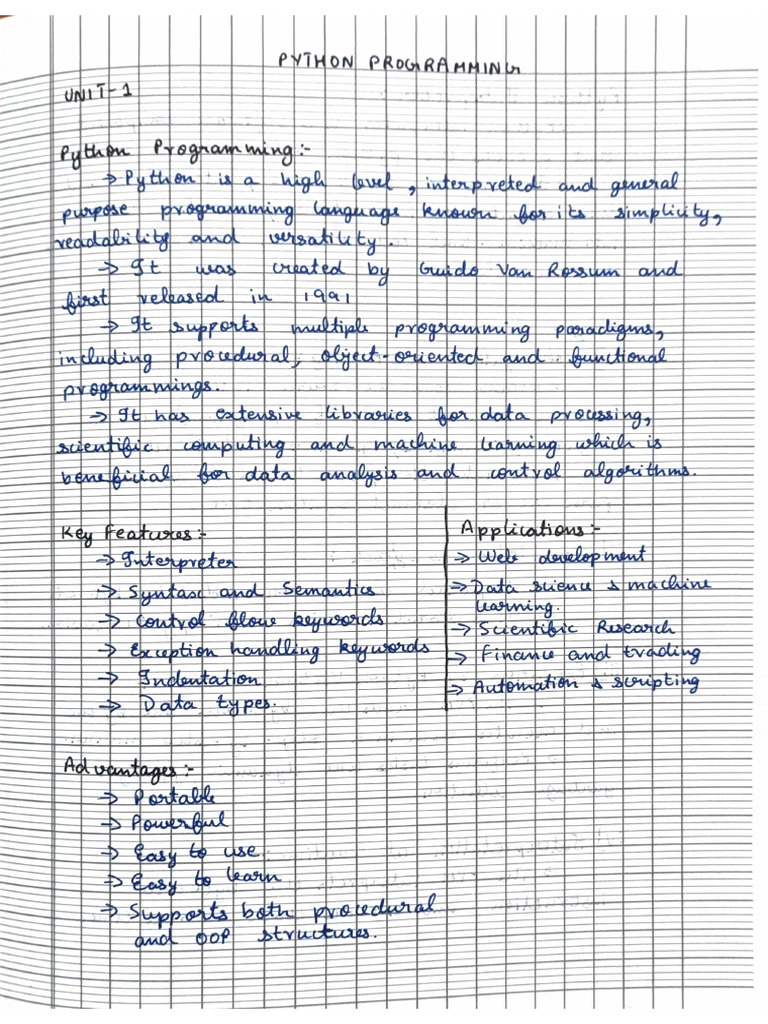 PYTHON PROGRAMMING
UNIT-1
Python Programming:-
→ Python is a high level, interpreted and general
purpose programming language known for its simplicity,
readability and versatility.
→ It was created by Guido Van Rossum and
first released in 1991
→ It supports multiple programming paradigms,
including procedural, object-oriented and functional
programmings.
→ It has extensive libraries for data processing,
scientific computing and machine learning which is
beneficial for data analysis and control algorithms.
Key Features:-
→ Interpreter
→ Syntax and Semantics
→ Control flow keywords
→ Exception handling keywords
→ Indentation
→ Data types.
Applications:-
→ Web development
→ Data science & machine
learning.
→ Scientific Research
→ Finance and trading
→ Automation & scripting
Advantages:-
→ Portable
→ Powerful
→ Easy to use
→ Easy to learn
→ Supports both procedural
and OOP structures.